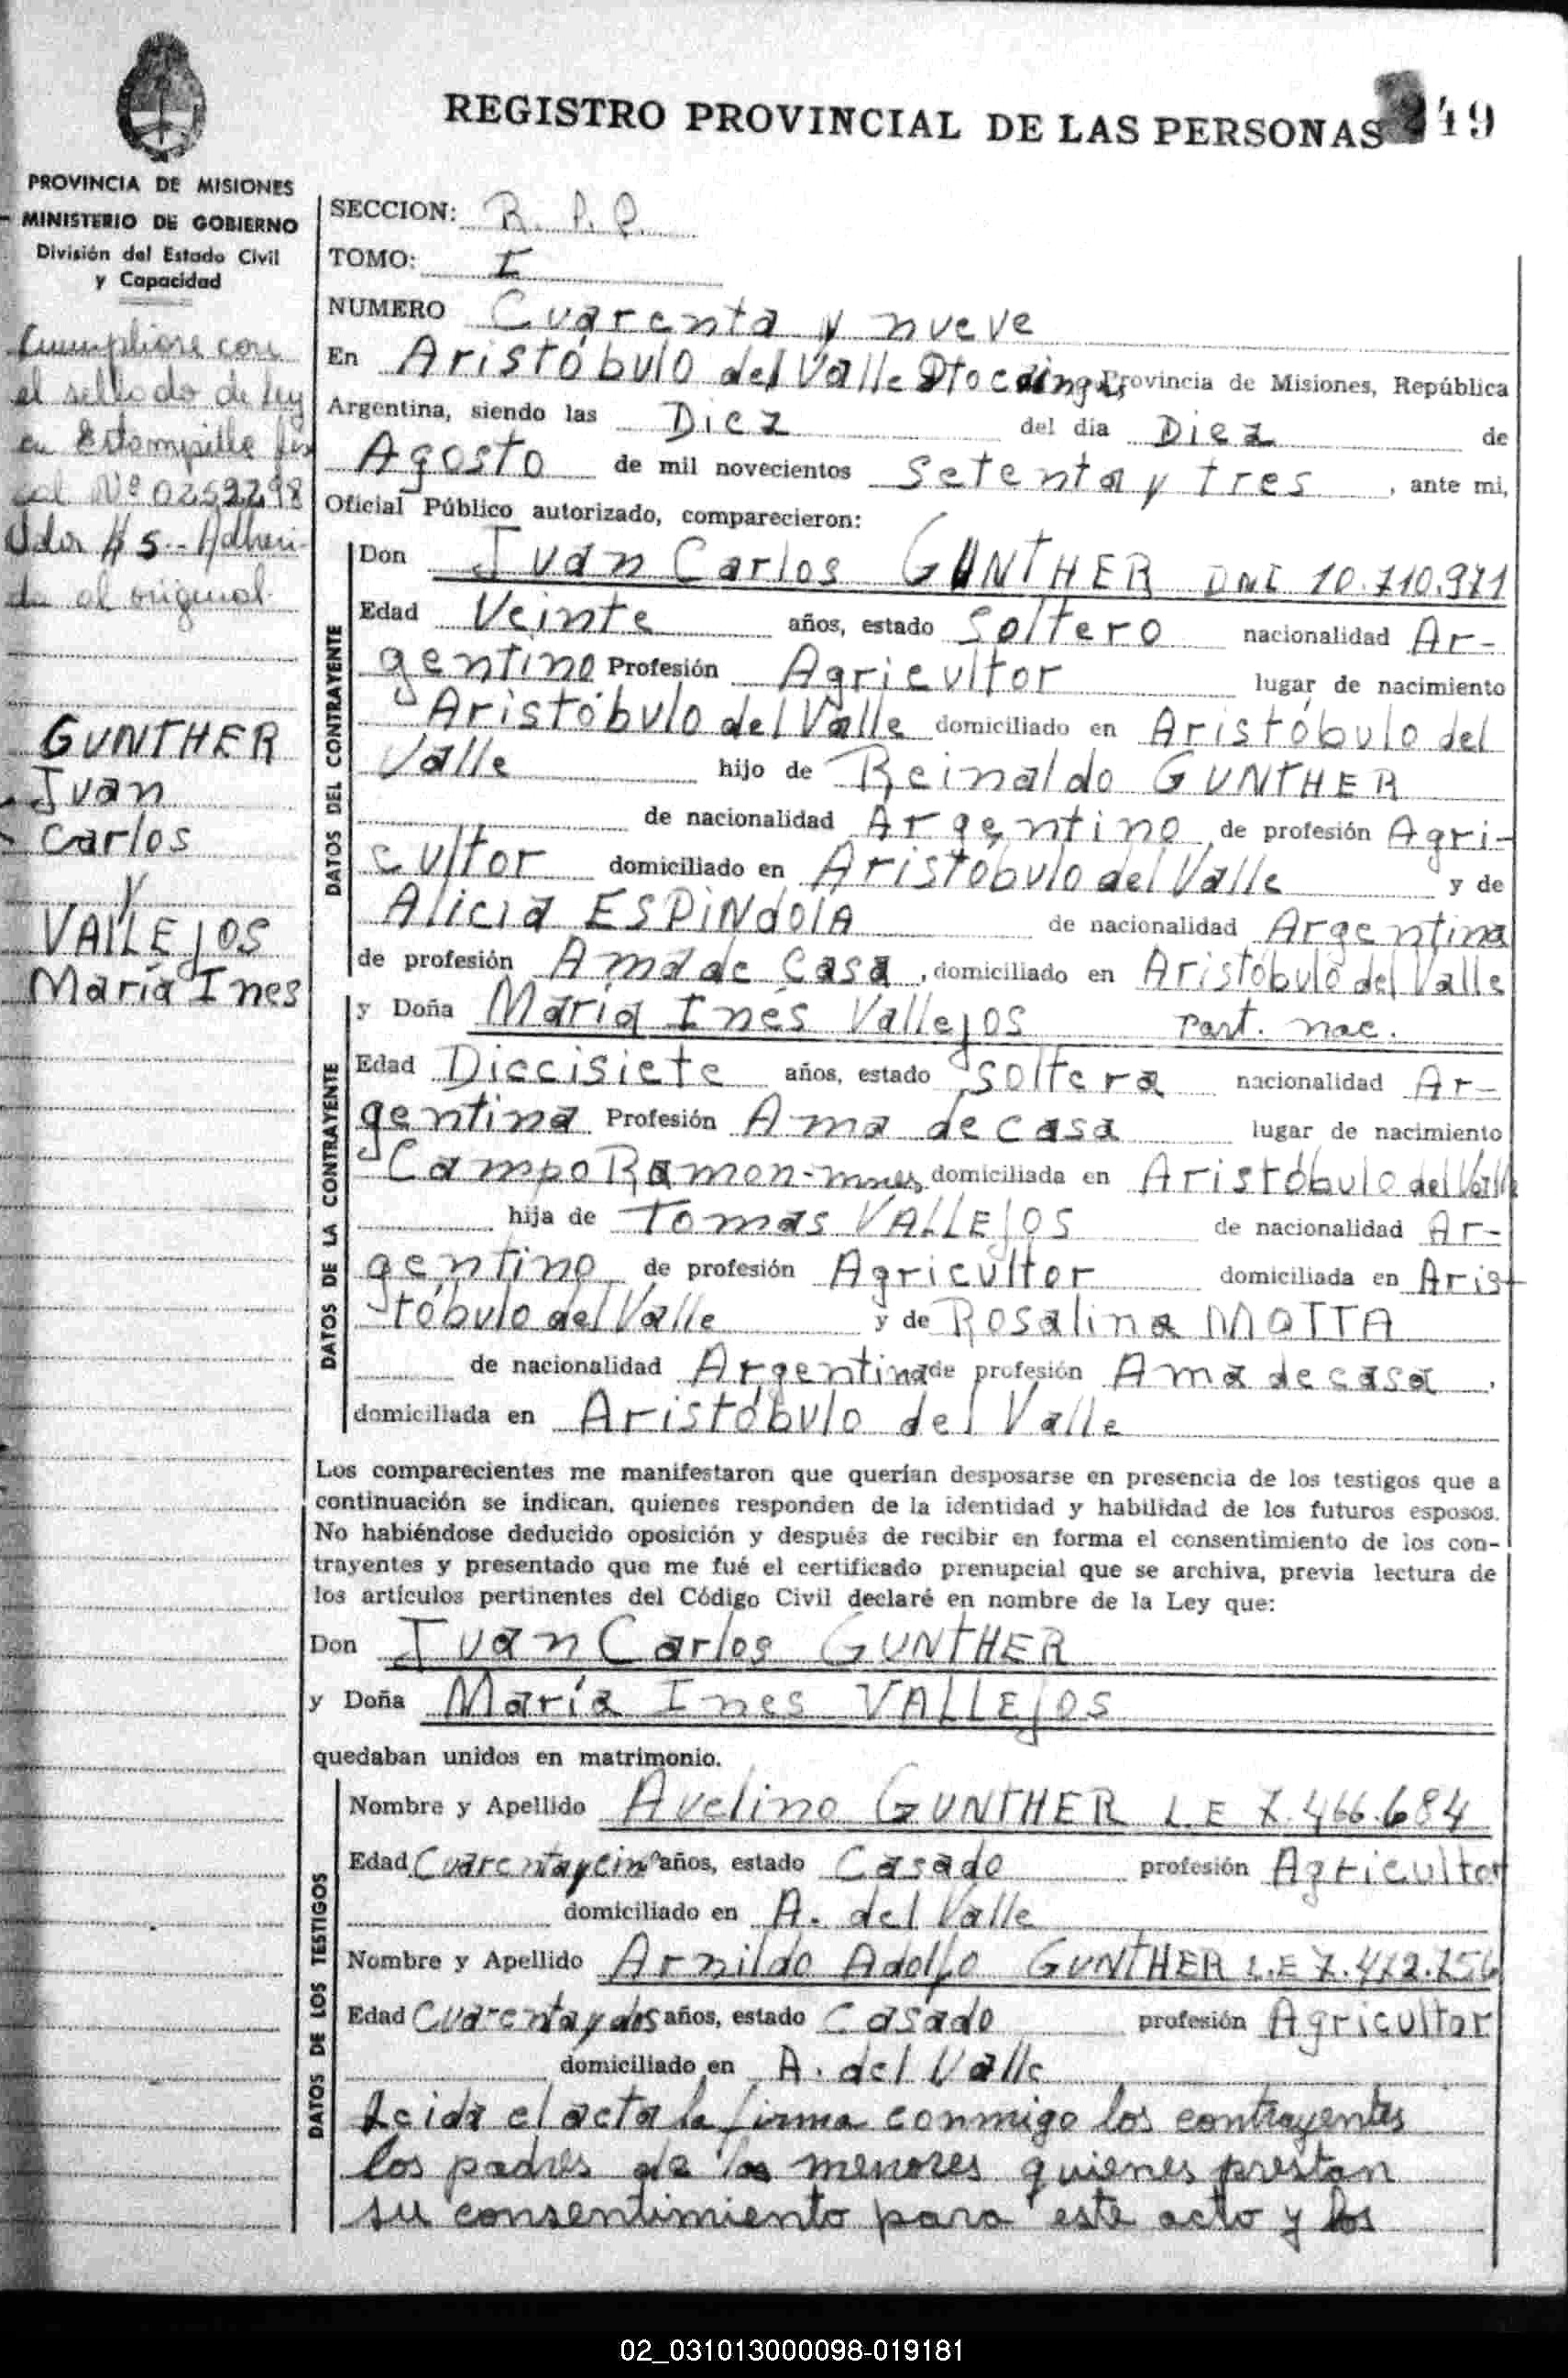 REGISTRO PROVINCIAL DE LAS PERSONAS 49
PROVINCIA DE MISIONES
MINISTERIO DE GOBIERNO
División del Estado Civil
y Capacidad
Cumpliose con
el sellado de ley
en Estampilla fis
cal Nº 0259298
Valor $ 5.- Adheri-
da al original.
GUNTHER
Juan
Carlos
y
VALLEJOS
María Ines
SECCION: R. P. P.
TOMO: I
NUMERO Cuarenta y nueve
En Aristóbulo del Valle Provincia de Misiones, República
Argentina, siendo las Diez del día Diez de
Agosto de mil novecientos setenta y tres, ante mi,
Oficial Público autorizado, comparecieron:
DATOS DEL CONTRAYENTE
Don Juan Carlos GUNTHER DNI 10.710.971
Edad Veinte años, estado Soltero nacionalidad Ar-
gentino Profesión Agricultor lugar de nacimiento
Aristóbulo del Valle domiciliado en Aristóbulo del
Valle hijo de Reinaldo GUNTHER
de nacionalidad Argentino de profesión Agri-
cultor domiciliado en Aristobulo del Valle y de
Alicia ESPINdOlA de nacionalidad Argentina
de profesión Ama de Casa, domiciliado en Aristóbulo del Valle
DATOS DE LA CONTRAYENTE
y Doña María Inés Vallejos Part. nac.
Edad Diecisiete años, estado soltera nacionalidad Ar-
gentina Profesión Ama de casa lugar de nacimiento
Campo Ramon-mnes, domiciliada en Aristóbulo del Valle
hija de Tomas VALLEJOS de nacionalidad Ar-
gentino de profesión Agricultor domiciliada en Aris-
tóbulo del Valle y de Rosalina MOTTA
de nacionalidad Argentina de profesión Ama de casa,
domiciliada en Aristóbulo del Valle
Los comparecientes me manifestaron que querían desposarse en presencia de los testigos que a
continuación se indican, quienes responden de la identidad y habilidad de los futuros esposos.
No habiéndose deducido oposición y después de recibir en forma el consentimiento de los con-
trayentes y presentado que me fué el certificado prenupcial que se archiva, previa lectura de
los artículos pertinentes del Código Civil declaré en nombre de la Ley que:
Don Juan Carlos GUNTHER
y Doña María Ines VALLEJOS
quedaban unidos en matrimonio.
DATOS DE LOS TESTIGOS
Nombre y Apellido Avelino GUNTHER L.E 7.466.684
Edad Cuarenta y cinco años, estado Casado profesión Agricultor
domiciliado en A. del Valle
Nombre y Apellido Arnildo Adolfo GUNTHER L.E
Edad Cuarenta y dos años, estado Casado profesión Agricultor
domiciliado en A. del Valle
Leida el acta la firma conmigo los contrayentes
los padres de los menores quienes prestan
su consentimiento para este acto y los
02_031013000098-019181